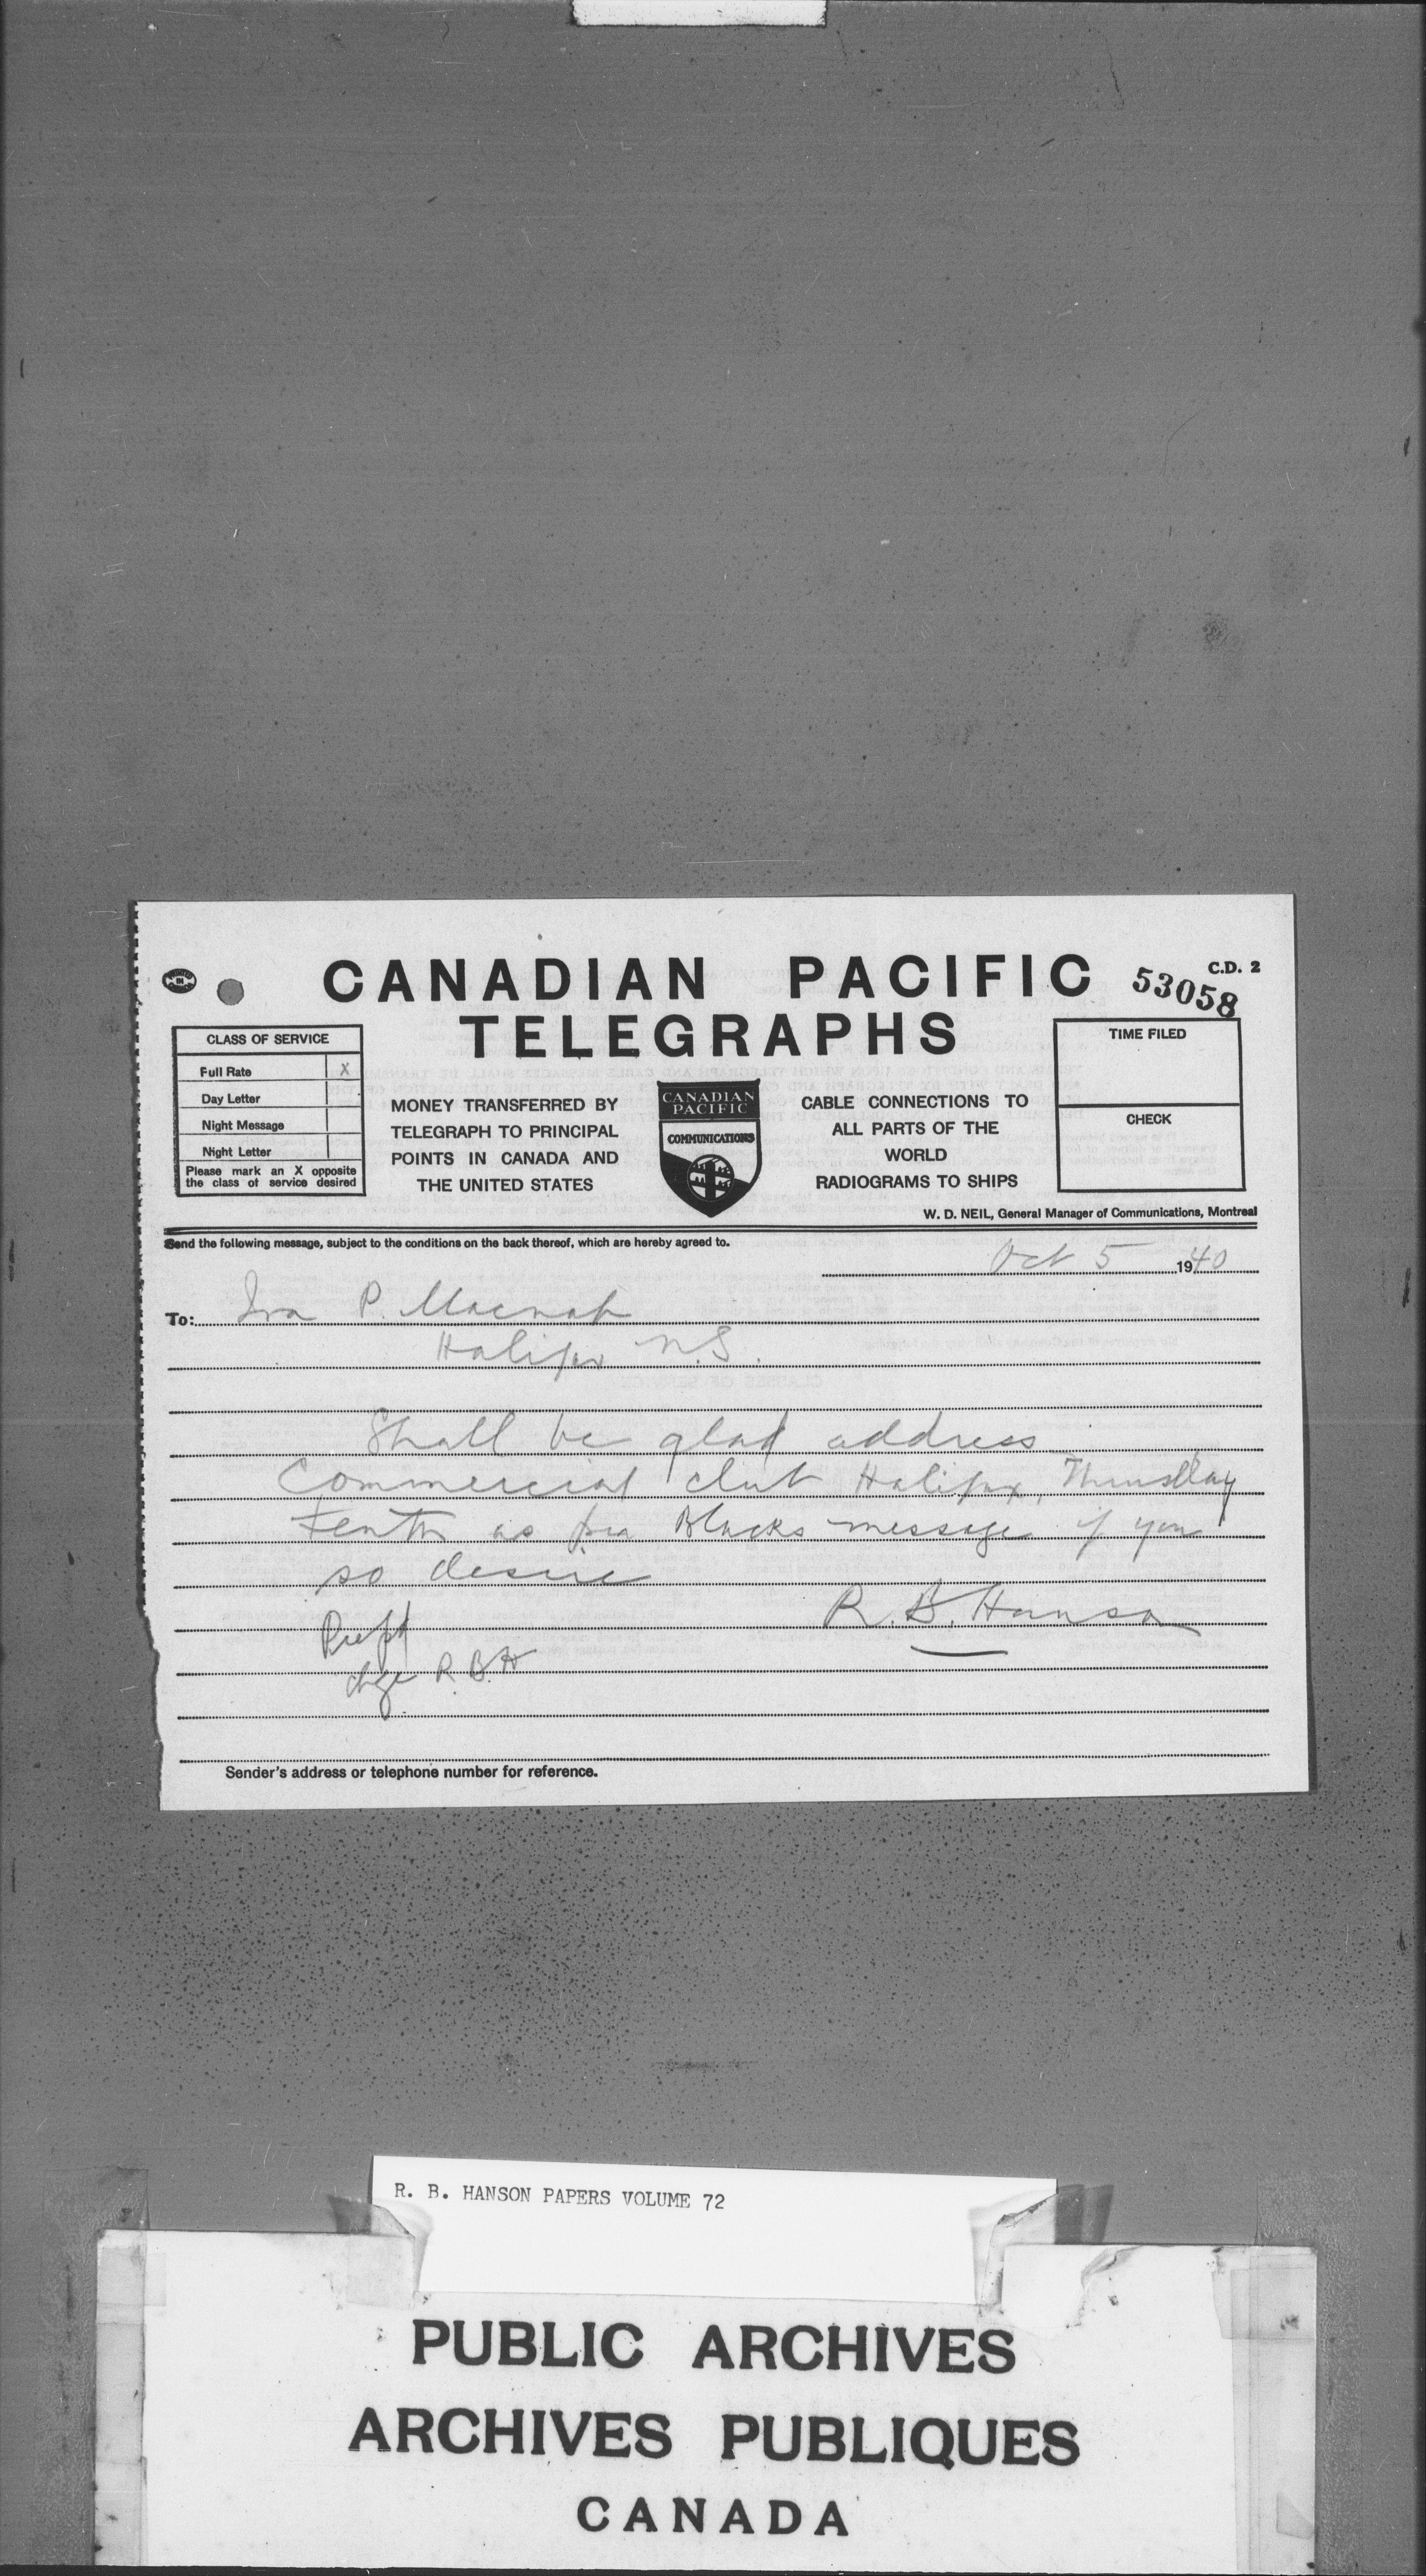 CANADIAN PACIFIC
TELEGRAPHS
C.D. 2
53058
CLASS OF SERVICE
Full Rate X
Day Letter
Night Message
Night Letter
Please mark an X opposite
the class of service desired
MONEY TRANSFERRED BY
TELEGRAPH TO PRINCIPAL
POINTS IN CANADA AND
THE UNITED STATES
CANADIAN
PACIFIC
COMMUNICATIONS
CABLE CONNECTIONS TO
ALL PARTS OF THE
WORLD
RADIOGRAMS TO SHIPS
TIME FILED
CHECK
W. D. NEIL, General Manager of Communications, Montreal
Send the following message, subject to the conditions on the back thereof, which are hereby agreed to.
Oct 5 1940
To: Ira P. Macnab
Halifax N.S.
Shall be glad address
Commercial club Halifax, Thursday
tenth as per Blacks message if you
so desire
R. B. Hanson
Prepd
chge R.B.H
Sender's address or telephone number for reference.
R. B. HANSON PAPERS VOLUME 72
PUBLIC ARCHIVES
ARCHIVES PUBLIQUES
CANADA